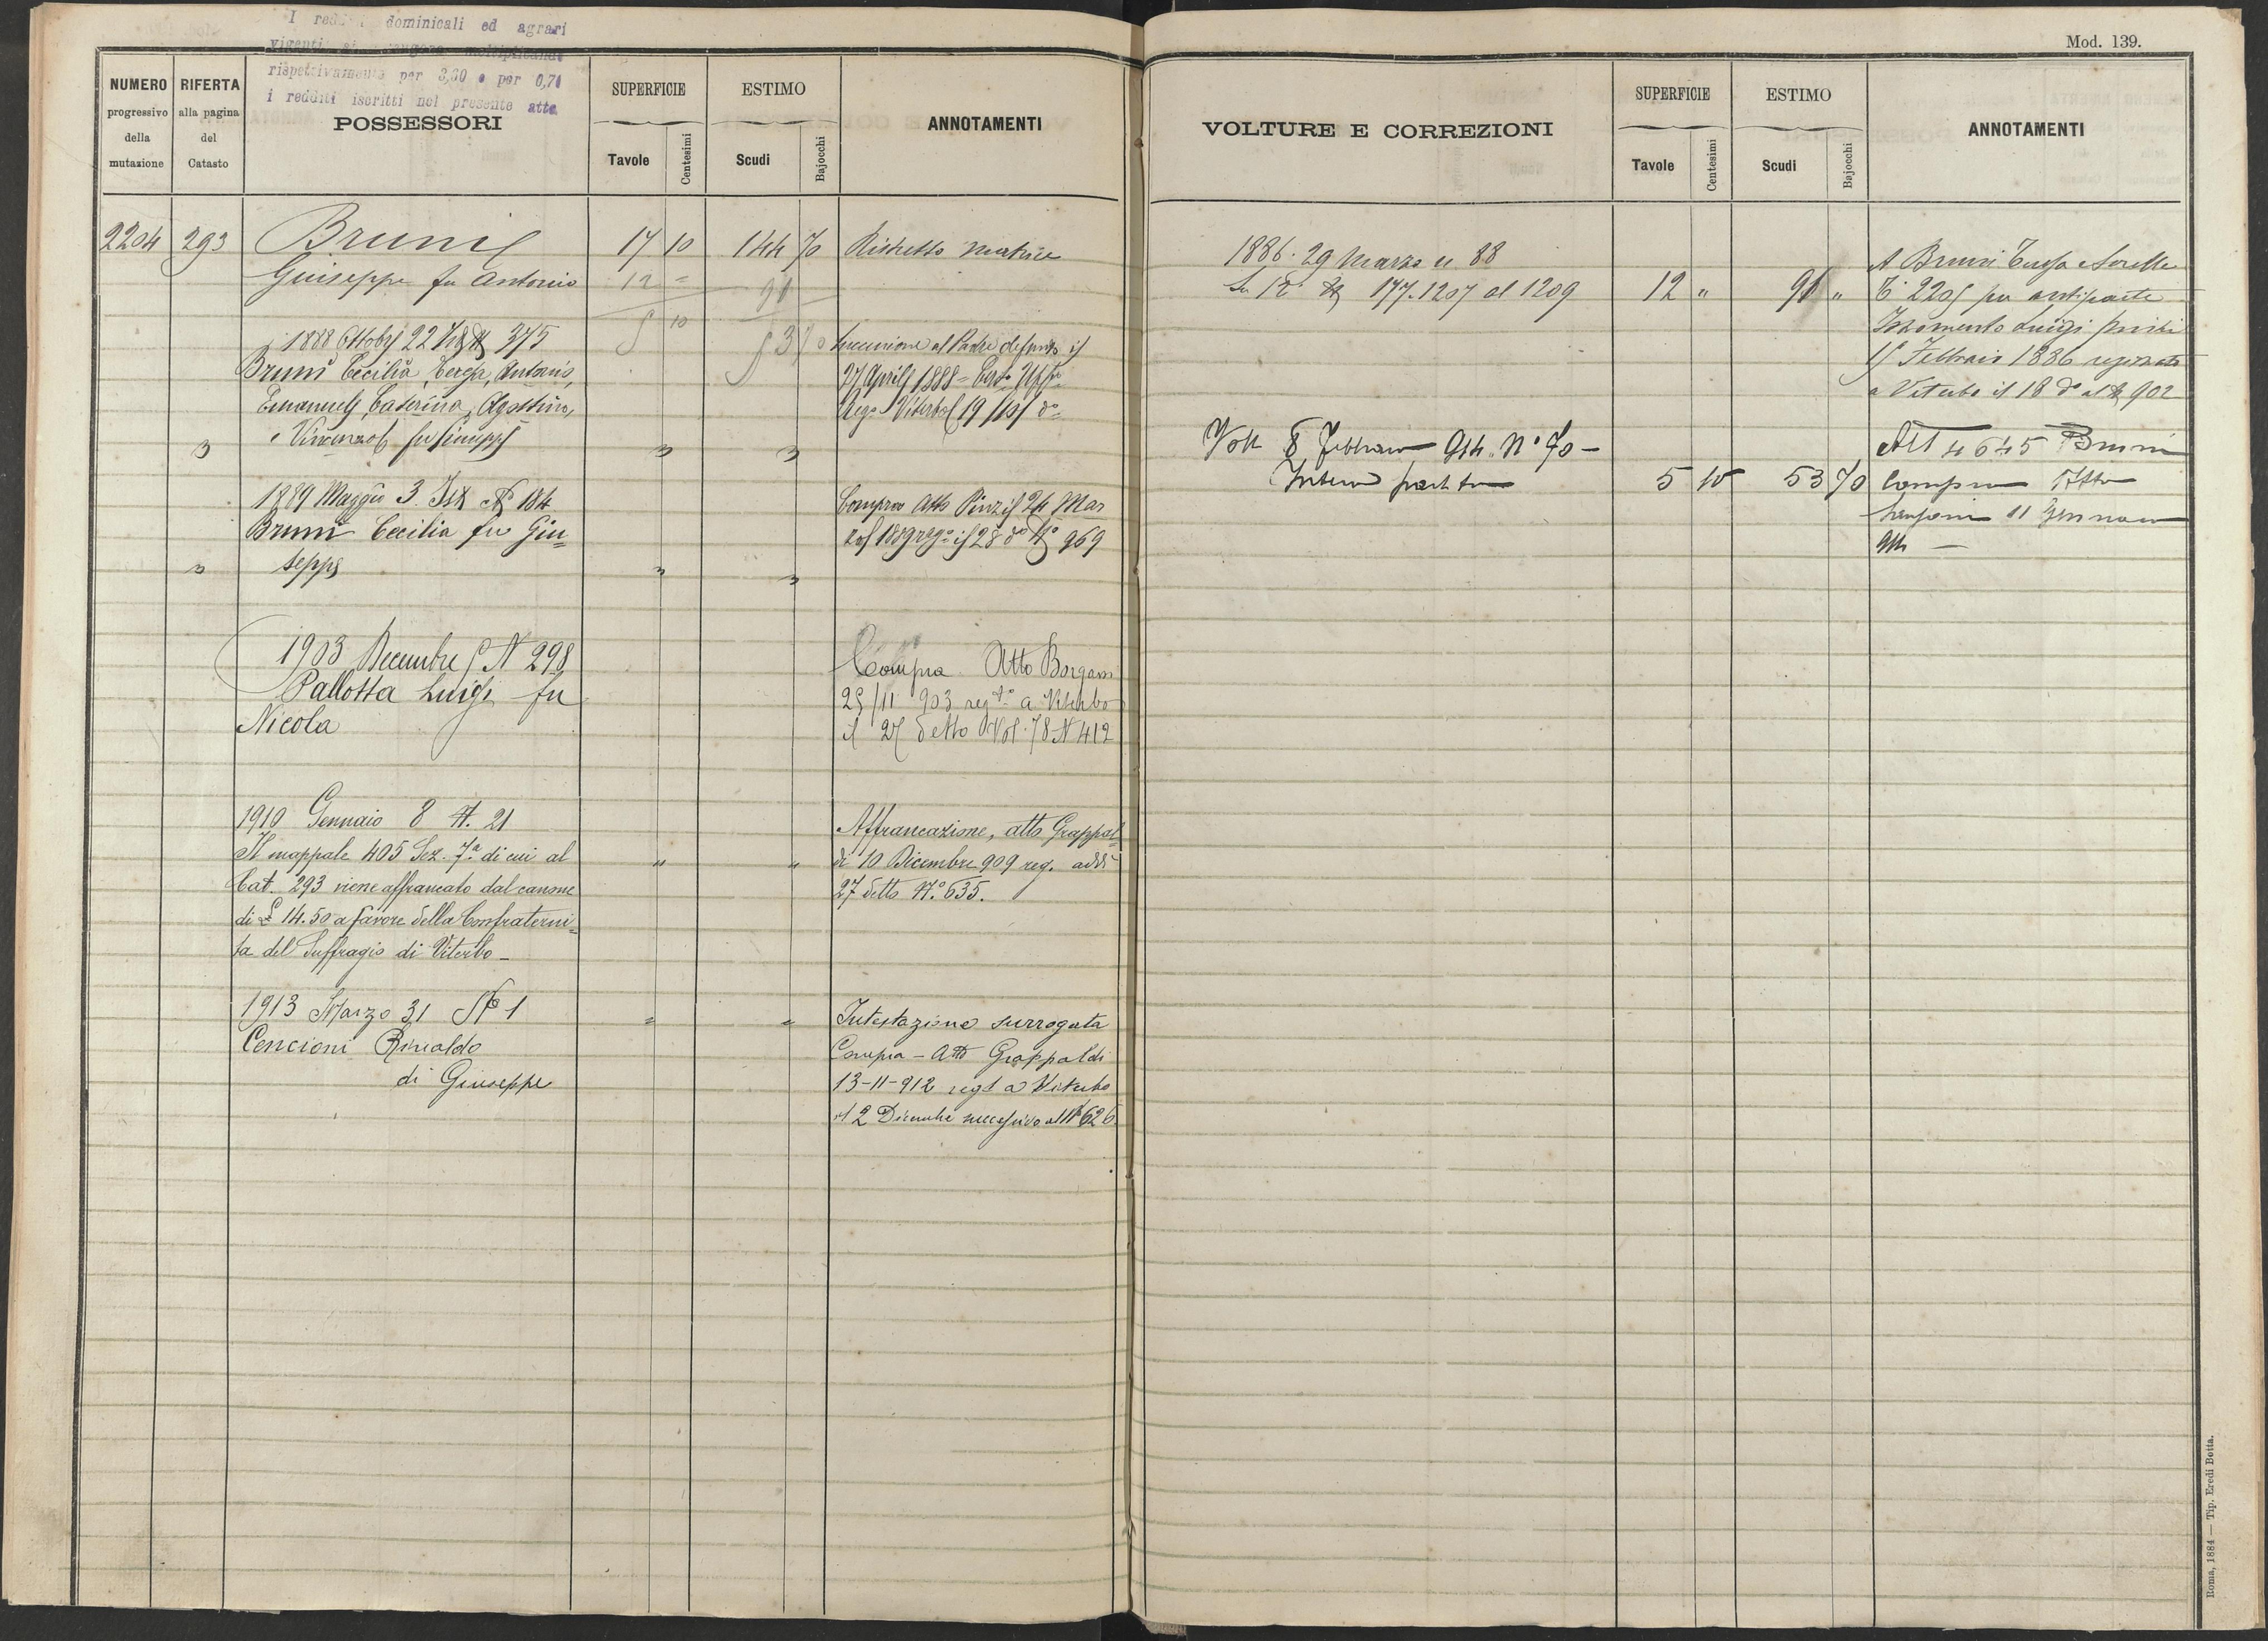 I dominicali ed agrari
vigenti si moltiplicando
rispettivamente per 3,60 e per 0,71
i redditi iscritti nel presente atto
NUMERO
progressivo
della
mutazione
RIFERTA
alla pagina
del
Catasto
POSSESSORI
SUPERFICIE
Tavole
Centesimi
ESTIMO
Scudi
Bajocchi
ANNOTAMENTI
2204 293 Bruni 17 10 144 70 Ristretto matrice
Giuseppe fu Antonio 12 = 91
5 10
53 70
1888 Ottobre 22 375
Bruni Cecilia, Teresa, Antonio,
Emanuele, Caterina, Agostino,
e Vincenzo fu Giuseppe
Successione al Padre defunto il
27 Aprile 1888
Viterbo 19
1889 Maggio 3 184
Bruni Cecilia fu Giu=
seppe
Compra Atto Pinzi 24 Mar
zo 1889 reg° il 28 d° N° 969
1903 Decembre 5 N 298
Pallotta Luigi fu
Nicola
Compra Atto Borgassi
25/11 903 reg° a Viterbo
il 27 detto Vol. 78 N 412
1910 Gennaio 8 N. 21
Il mappale 405 Sez. 7ª di cui al
Cat. 293 viene affrancato dal canone
di £ 14.50 a favore della Confraterni=
ta del Suffragio di Viterbo -
" "
Affrancazione, atto Grappol=
di 10 Dicembre 909 reg. addì
27 detto N.° 635.
1913 Marzo 31 N° 1
Cencioni Rinaldo
di Giuseppe
= =
Intestazione surrogata
Compra - Atto Grappoldi
13-11-912 regt a Viterbo
il 2 Dicembre successivo al N° 626
Mod. 139.
VOLTURE E CORREZIONI
SUPERFICIE
Tavole
Centesimi
ESTIMO
Scudi
Bajocchi
ANNOTAMENTI
1886. 29 Marzo n 88
177. 1207 al 1209 12 " 91 "
A Bruni Teresa e Sorelle
2205 per antiparte
Istromento Luigi
15 Febbraio 1886 registrato
a Viterbo il 18 d° al N 902
Volt 8 Febbraio 914. N° 70 -
Intera partita 5 10 53 70
Art 4645 Bruni
Compra Atto
11 Gennaio
914 -
Roma, 1884 — Tip. Eredi Botta.